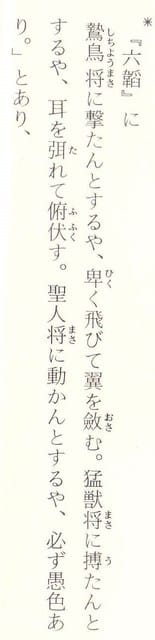 *『六韜』に
鷙鳥将に撃たんとするや、卑く飛びて翼を斂む。猛獣将に搏たんと
するや、耳を弭れて俯伏す。聖人将に動かんとするや、必ず愚色あ
り。」とあり、